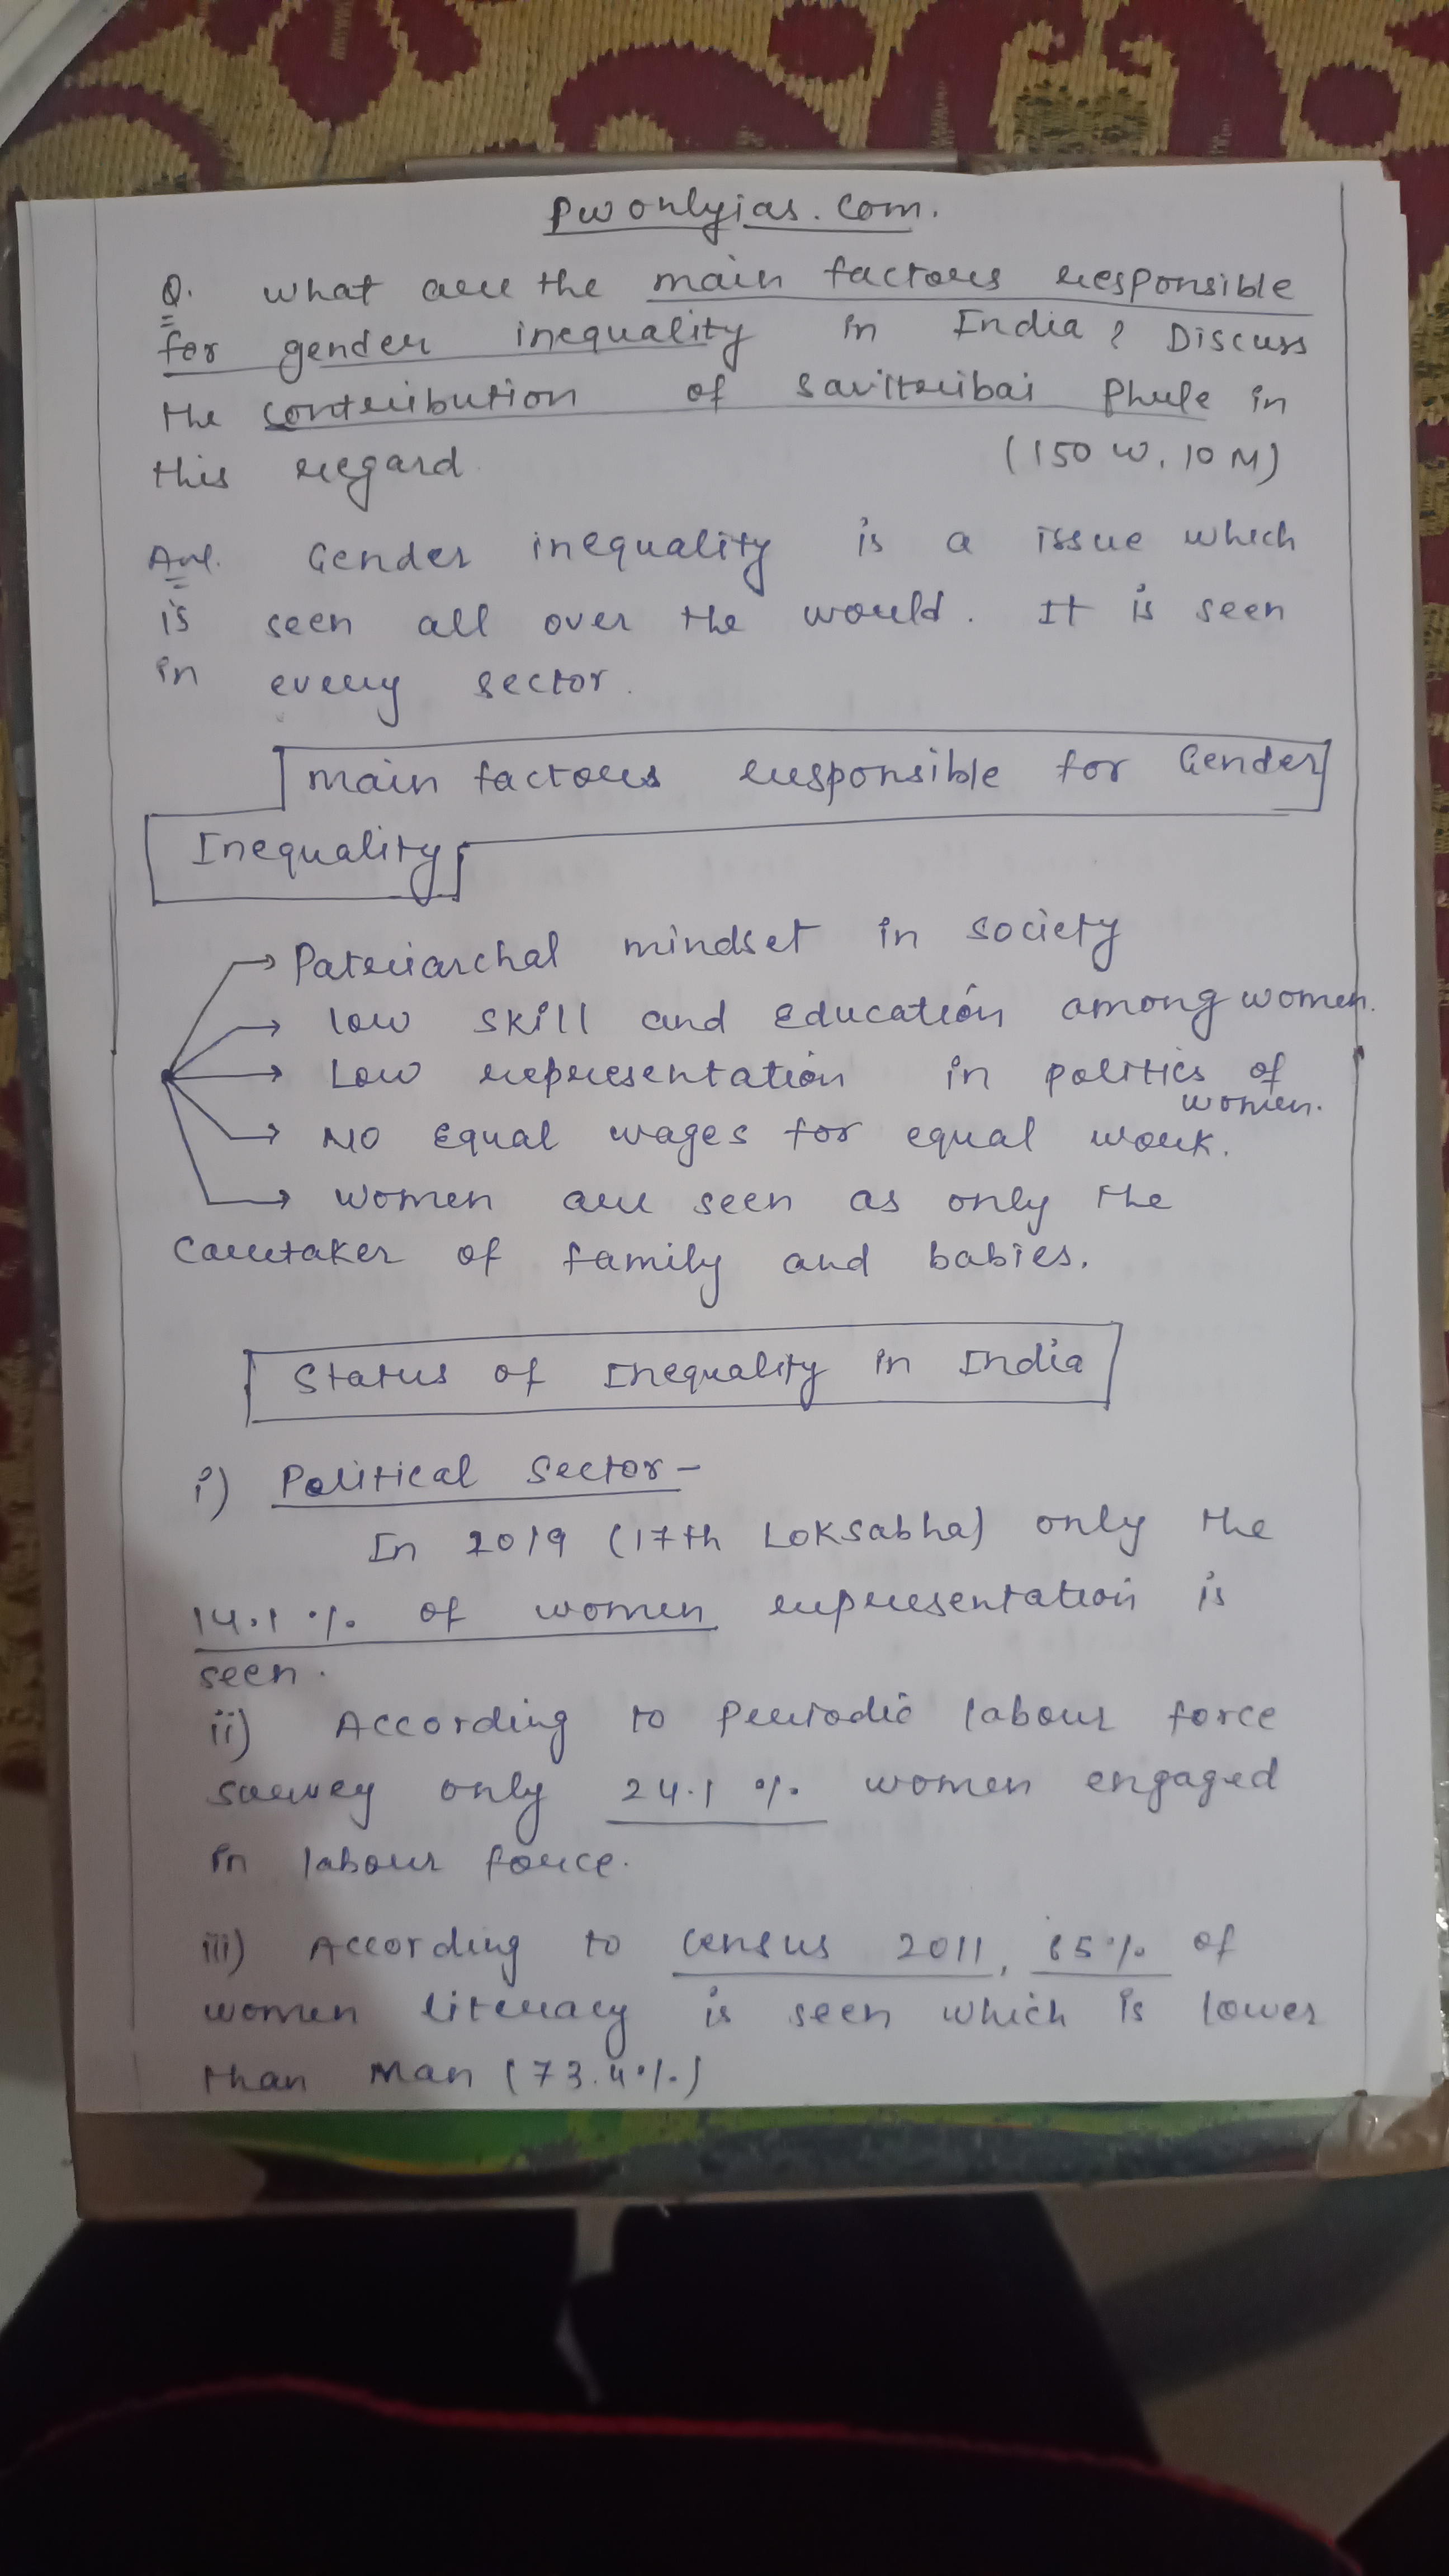 pwonlyias.com.
Q. what are the main factors responsible
for gender inequality in India? Discuss
the contribution of savitribai Phule in
this regard. (150 W, 10 M)
Ans. Gender inequality is a issue which
is seen all over the world. It is seen
in every sector.
main factors responsible for Gender
Inequality
→ Patriarchal mindset in society
→ low skill and Education among women.
→ Low representation in politics of
women.
→ No Equal wages for equal work.
→ women are seen as only the
caretaker of family and babies.
Status of Inequality in India
i) Political Sector-
In 2019 (17th Loksabha) only the
14.1 % of women representation is
seen.
ii) According to Periodic labour force
survey only 24.1 % women engaged
in labour force.
iii) According to census 2011, 65% of
women literacy is seen which is lower
than Man (73.4%)